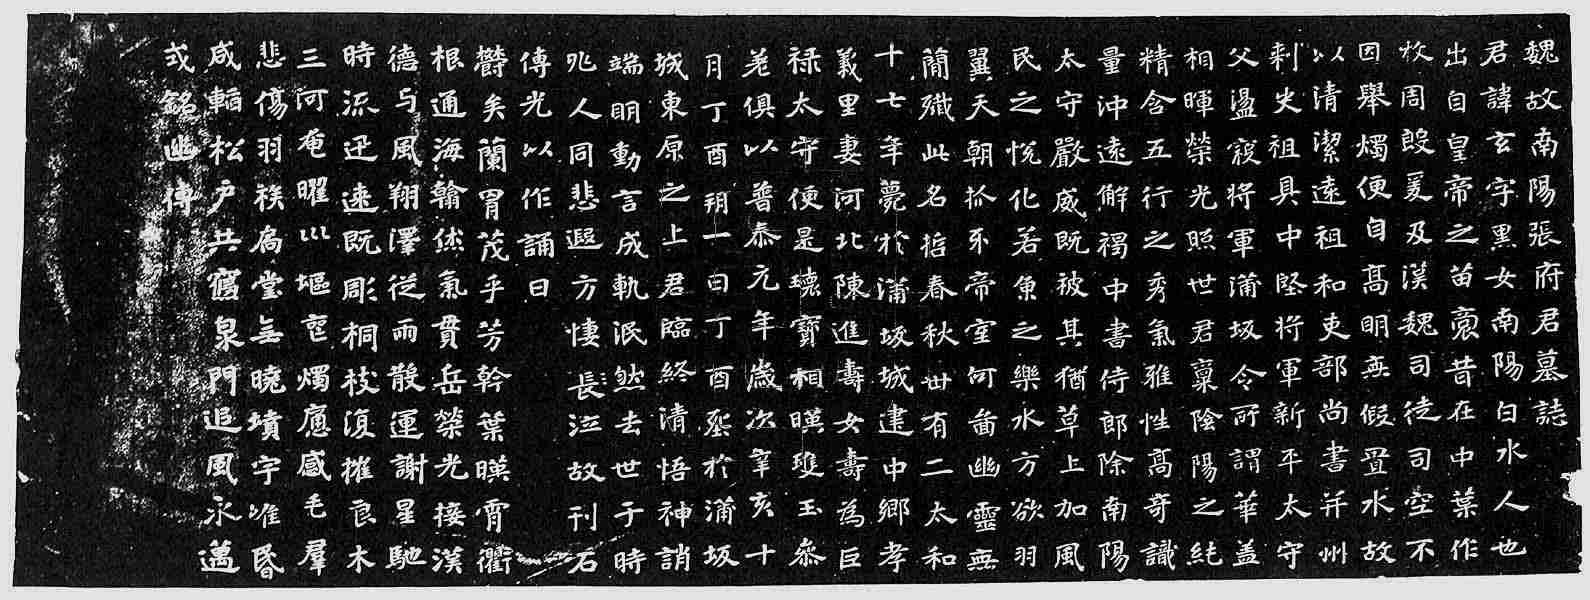 魏故南陽張府君墓誌
君諱玄字黑女南陽白水人也
出自皇帝之苗裔昔在中葉作
牧周殷爰及漢魏司徒司空不
因舉燭便自高明無假置水故
以清潔遠祖和吏部尚書并州
刺史祖具中堅將軍新平太守
父盪寇將軍蒲坂令所謂華蓋
相暉榮光照世君稟陰陽之純
精含五行之秀氣雅性高奇識
量沖遠解褐中書侍郎除南陽
太守嚴威既被其猶草上加風
民之悅化若魚之樂水方欲羽
翼天朝抓牙帝室何啚幽靈無
簡殲此名哲春秋卅有二太和
十七年薨於蒲坂城建中鄉孝
義里妻河北陳進壽女壽為巨
祿太守便是瓌寶相暎瓊玉參
差俱以普泰元年歲次辛亥十
月丁酉朔一日丁酉葬於蒲坂
城東原之上君臨終清悟神誚
端明動言成軌泯然去世于時
兆人同悲遐方悽長泣故刊石
傳光以作誦曰
鬱矣蘭冑茂乎芳幹葉暎霄衢
根通海翰絑氣貫岳榮光接漢
德与風翔澤從雨散運謝星馳
時流迅速既彫桐枝復摧良木
三河奄曜巛塸燭應感毛羣
悲傷羽族扃堂無曉墳宇唯昏
咸韜松戶共寢泉門追風永邁
式銘幽傳